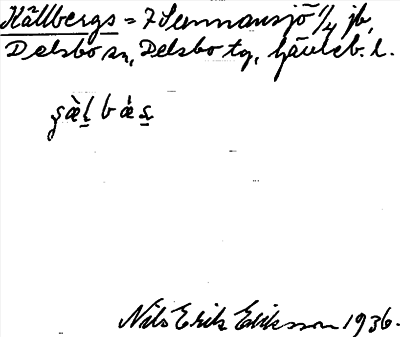 Källbergs = 7 Sunnansjö 1/4 jb,
Delsbo sn, Delsbo tg, Gävleb. l.
Nils Erik Eriksson 1936.